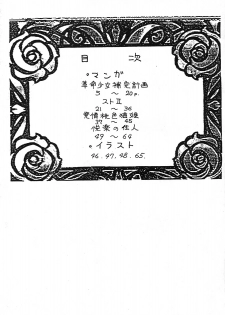 目 次
。マンガ
革命少女補完計画
5 〜 20p.
ストⅡ
21 〜 36
愛情桃色横強
37 〜 45
悦楽の住人
49 〜 64
。イラスト
46. 47. 48. 65.